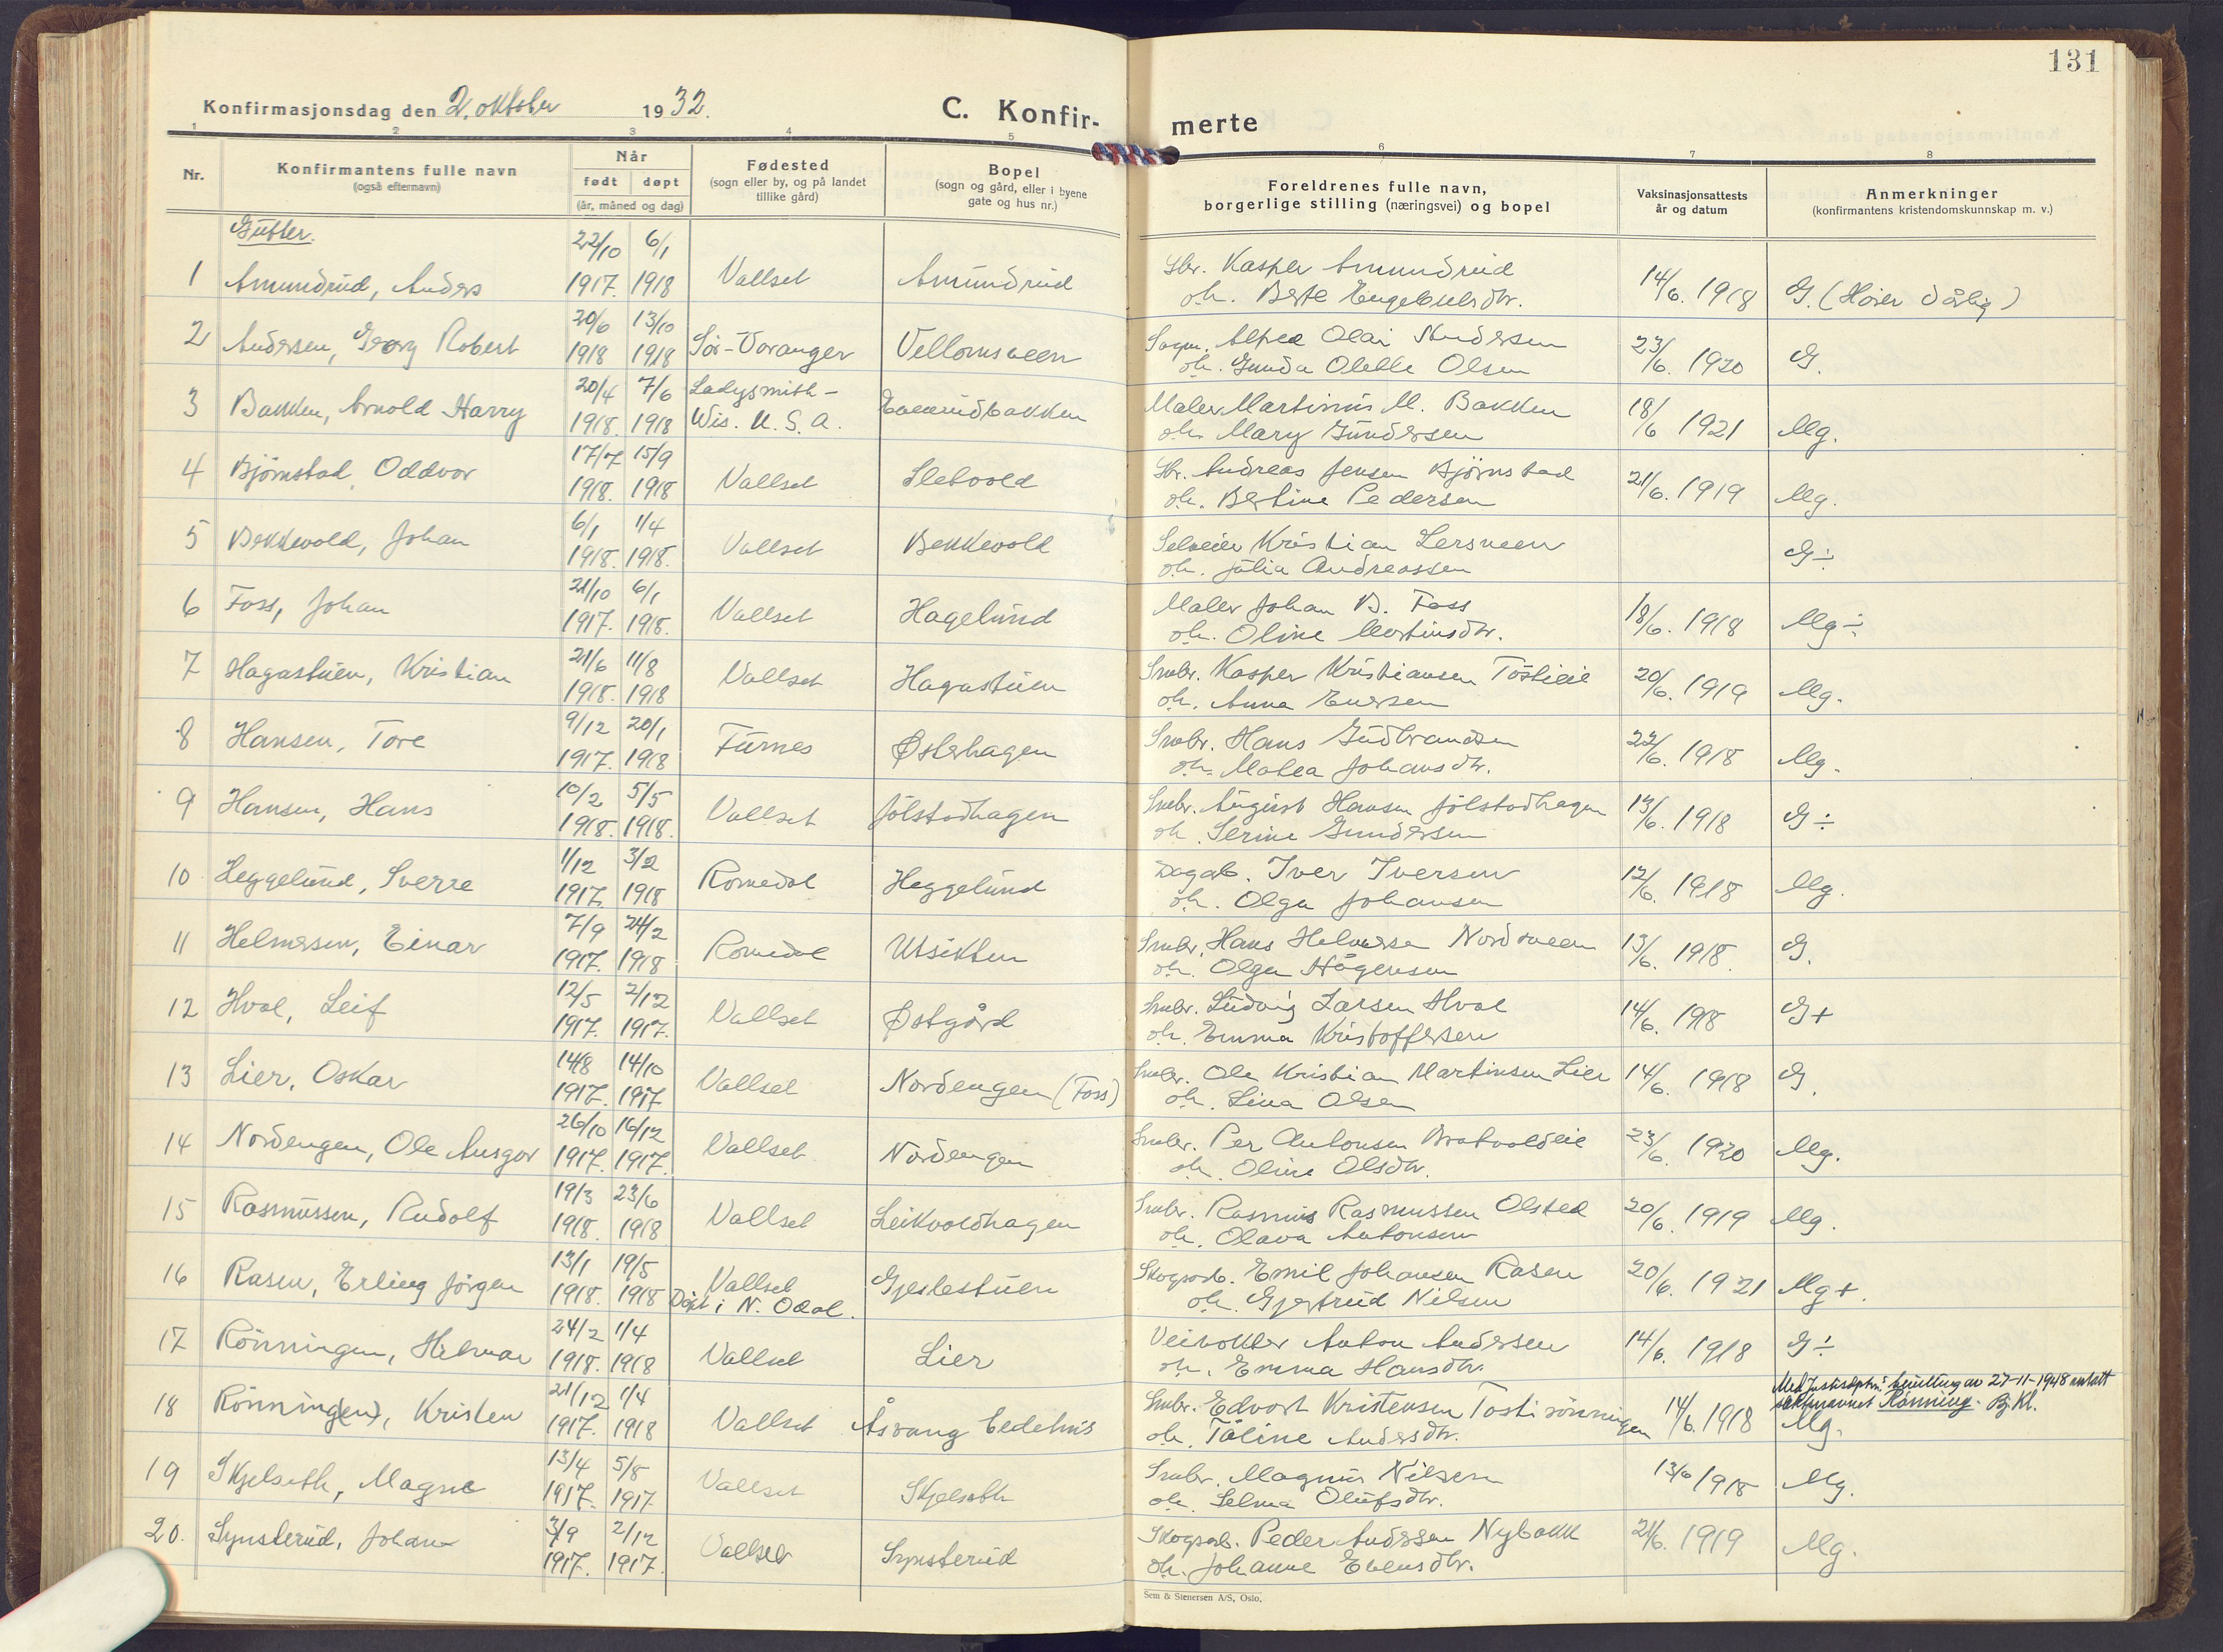 131
Konfirmasjonsdag den 2. oktober 1932.
C. Konfir-
merte
1 2 3 4 5 6 7 8
Nr.
Konfirmantens fulle navn
(også efternavn)
Når
født døpt
(år, måned og dag)
Fødested
(sogn eller by, og på landet
tillike gård)
Bopel
(sogn og gård, eller i byene
gate og hus nr.)
Foreldrenes fulle navn,
borgerlige stilling (næringsvei) og bopel
Vaksinasjonsattests
år og datum
Anmerkninger
(konfirmantens kristendomskunnskap m. v.)
Gutter.
22/10 6/1 Kasper Amundrud
1 Amundrud, Anders 1917. 1918 Vallset Amundrud oh. Berte Engebretsdtr. 14/6. 1918 G. (Hører dårlig)
20/6 13/10 Alfred Olai Andersen
2 Andersen, Georg Robert 1918 1918 Sør-Varanger Vellomsveen oh. Gunda Olette Olsen 23/6. 1920 G.
20/4 7/6 Ladysmith- Maler Martinus M. Bakken
3 Bakken, Arnold Harry 1918. 1918 Wis. U.S.A. oh. Mary Gundersen 18/6 1921 Mg.
17/7 15/9 Andreas Jensen Bjørnstad
4 Bjørnstad, Oddvar 1918. 1918 Vallset Sletvold oh. Bertine Pedersen 21/6. 1919 Mg.
6/1 1/4 Selveier Kristian Lersveen
5 Bekkevold, Johan 1918. 1918. Vallset Bekkevold oh. Julia Andreassen G÷
21/10 6/1 Maler Johan B. Foss
6 Foss, Johan 1917. 1918. Vallset Hagelund oh. Oline Martinsdtr. 18/6. 1918 Mg÷
21/6 11/8 Smbr. Kasper Kristiansen
7 Hagastuen, Kristian 1918. 1918 Vallset Hagastuen oh. Anna Eversen 20/6. 1919 Mg.
9/12 20/1 Smbr. Hans Gudbrandsen
8 Hansen, Tore 1917. 1918 Furnes Østerhagen oh. Malea Johansdtr. 22/6. 1918 Mg.
10/2 5/5 Smbr. August Hansen Jølstadhagen
9 Hansen, Hans 1918. 1918. Vallset Jølstadhagen oh. Serine Gundersen 13/6. 1918 G÷
1/12 3/2 Dagarb. Iver Iversen
10 Heggelund, Sverre 1917. 1918 Romedal Heggelund oh. Olga Johansen 12/6. 1918 Mg.
7/9 24/2 Smbr. Hans Helmersen Nordsveen
11 Helmersen, Einar 1917. 1918 Romedal Utsikten oh. Olga Hågensen 13/6. 1918. G.
12/5 2/12 Smbr. Ludvig Larsen Hval
12 Hval, Leif 1917. 1917. Vallset Østgård oh. Emma Kristoffersen 14/6. 1918 G+
14/8 14/10 Smbr. Ole Kristian Martinsen Lier
13 Lier, Oskar 1917. 1917 Vallset Nordengen (Foss) oh. Lina Olsen 14/6. 1918 G.
26/10 16/12 Smbr. Per Antonsen Bratvoldeie
14 Nordengen, Ole Ansgar 1917. 1917. Vallset Nordengen oh. Oline Olsdtr. 23/6. 1920 Mg.
19/3 23/6 Smbr. Rasmus Rasmussen Olstad
15 Rasmussen, Rudolf 1918. 1918 Vallset Leikvoldhagen oh. Olava Antonsen 20/6. 1919 Mg.
13/1 19/5 Vallset Skogsarb. Emil Johansen Rasen
16 Rasen, Erling Jørgen 1918. 1918 Døpt i N. Odal. Gjestestuen oh. Gjertrud Nilsen 20/6. 1921 Mg+.
24/2 1/4 Veivokter Anton Andersen
17 Rönningen, Helmar 1918. 1918 Vallset Lier oh. Emma Hansdtr. 14/6. 1918 G÷
Med Justisdptm.s bevilling av 27-11-1948 antatt
slektsnavnet Rönning. Bj. Kl.
21/12 1/4 Smbr. Edvart Kristensen Tostirönningen
18 Rönning(en), Kristen 1917. 1918 Vallset Åsvang oh. Taline Andersdtr. 14/6. 1918 Mg.
13/4 5/8 Smbr. Magnus Nilsen
19 Skjelseth, Magne 1917. 1917. Vallset Skjelseth oh. Selma Olufsdtr. 13/6 1918 Mg.
3/9 2/12 Skogsarb. Peder Andersen Nybakk
20. Synsterud, Johan 1917. 1917. Vallset Synsterud oh. Johanne Evensdtr. 21/6. 1919 Mg.
Sem & Stenersen A/S, Oslo.